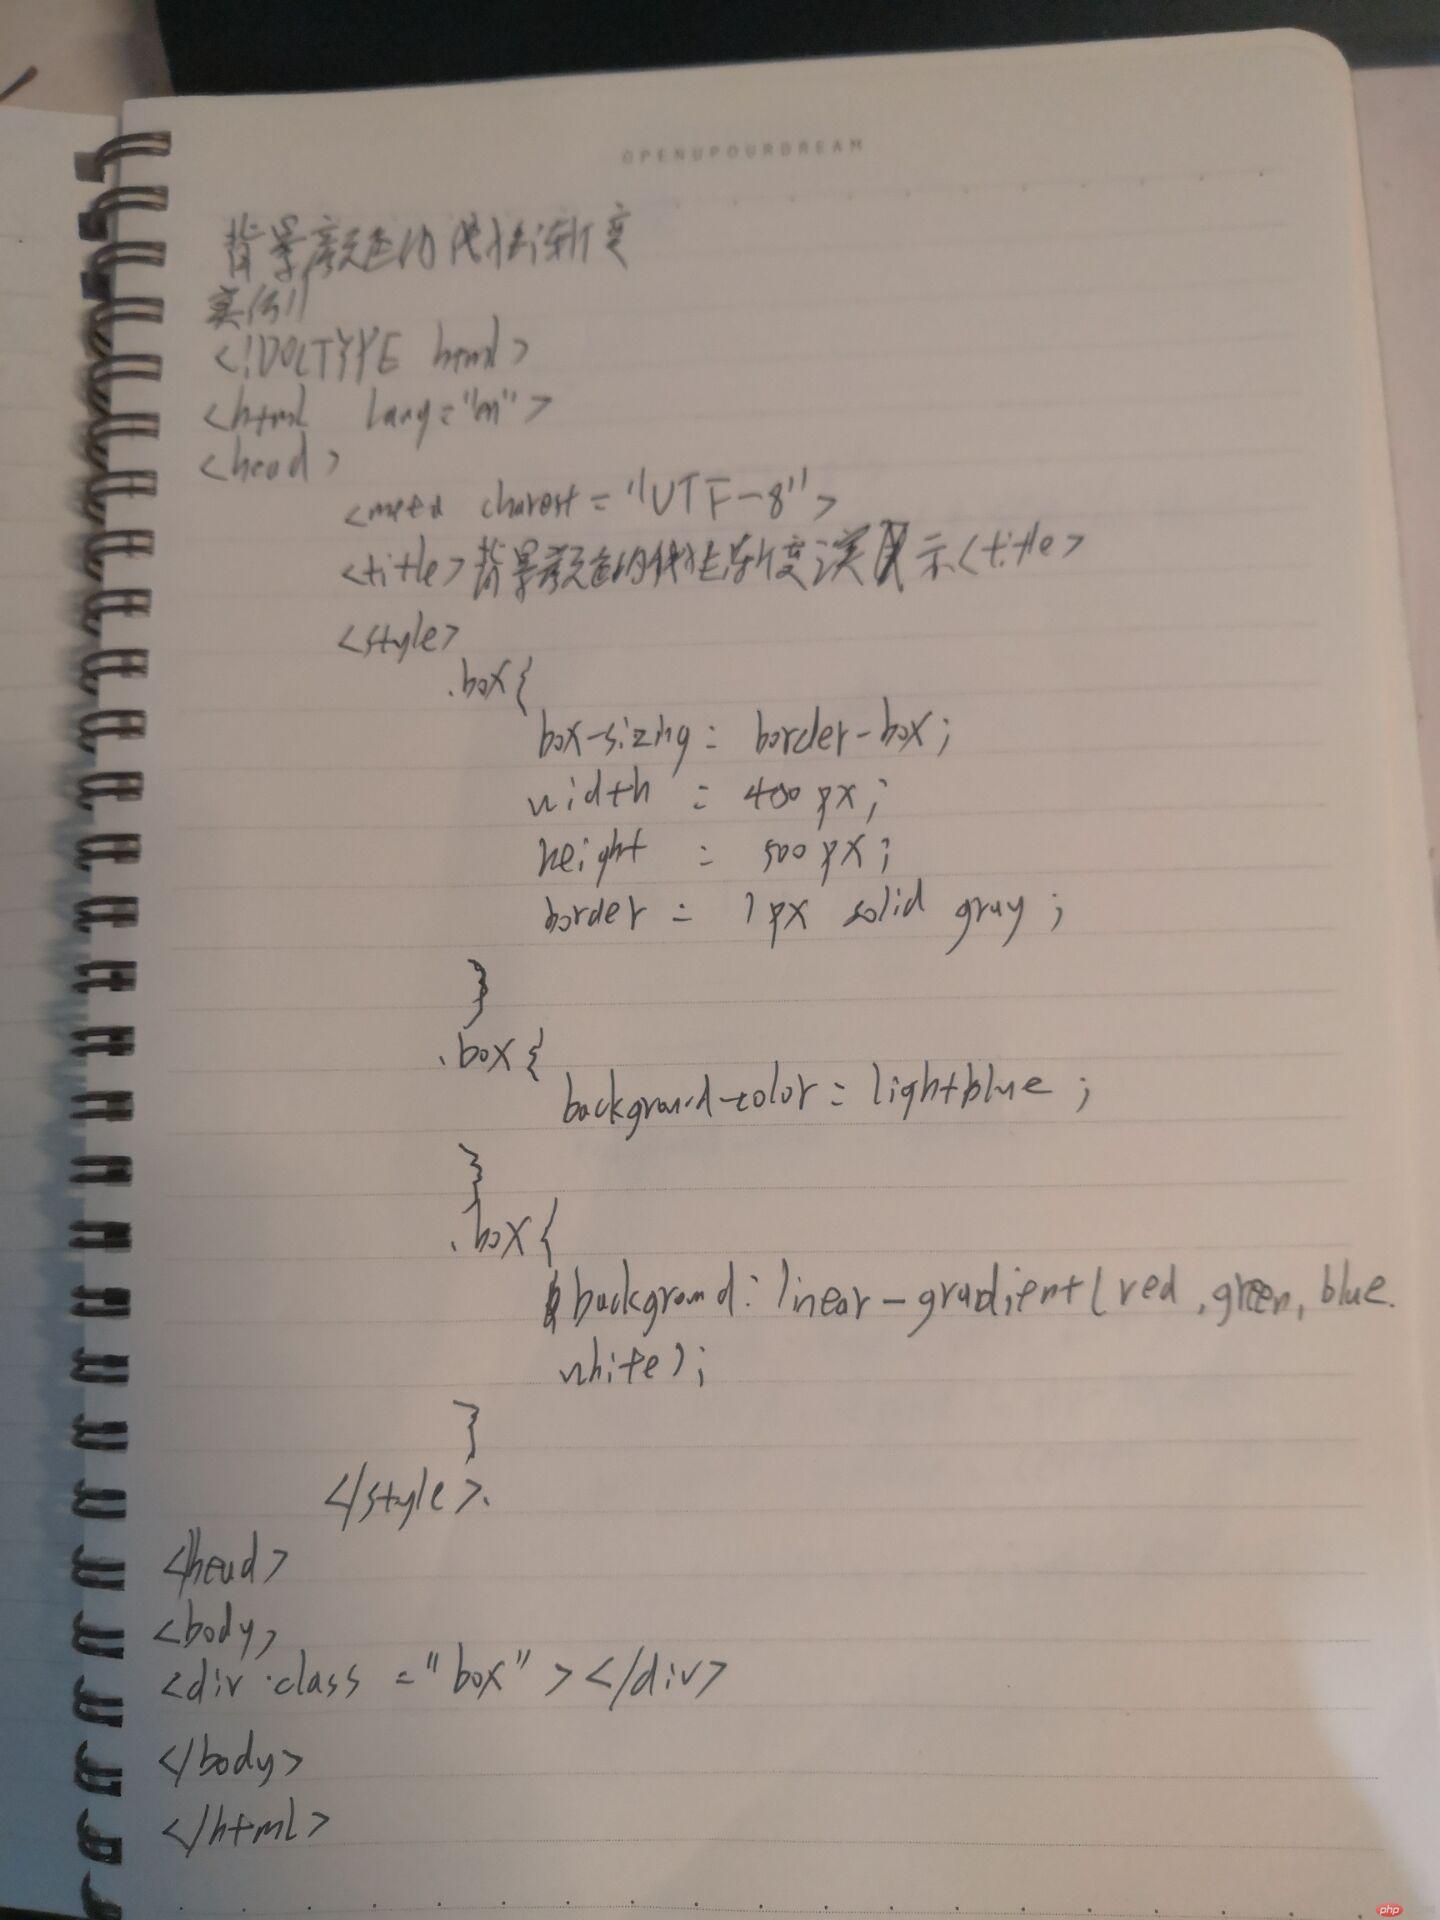 OPENUPOURDREAM
背景颜色的线性渐变
实例
<!DOCTYPE html>
<html lang="en">
<head>
<meta charest="UTF-8">
<title>背景颜色的线性渐变演示<title>
<style>
.box{
box-sizing: border-box;
width : 400px;
height : 500px;
border = 1px solid gray;
}
.box{
background-color = lightblue ;
}
.box{
background: linear-gradient(red, green, blue.
white);
}
</style>.
</head>
<body>
<div class ="box"></div>
</body>
</html>
php